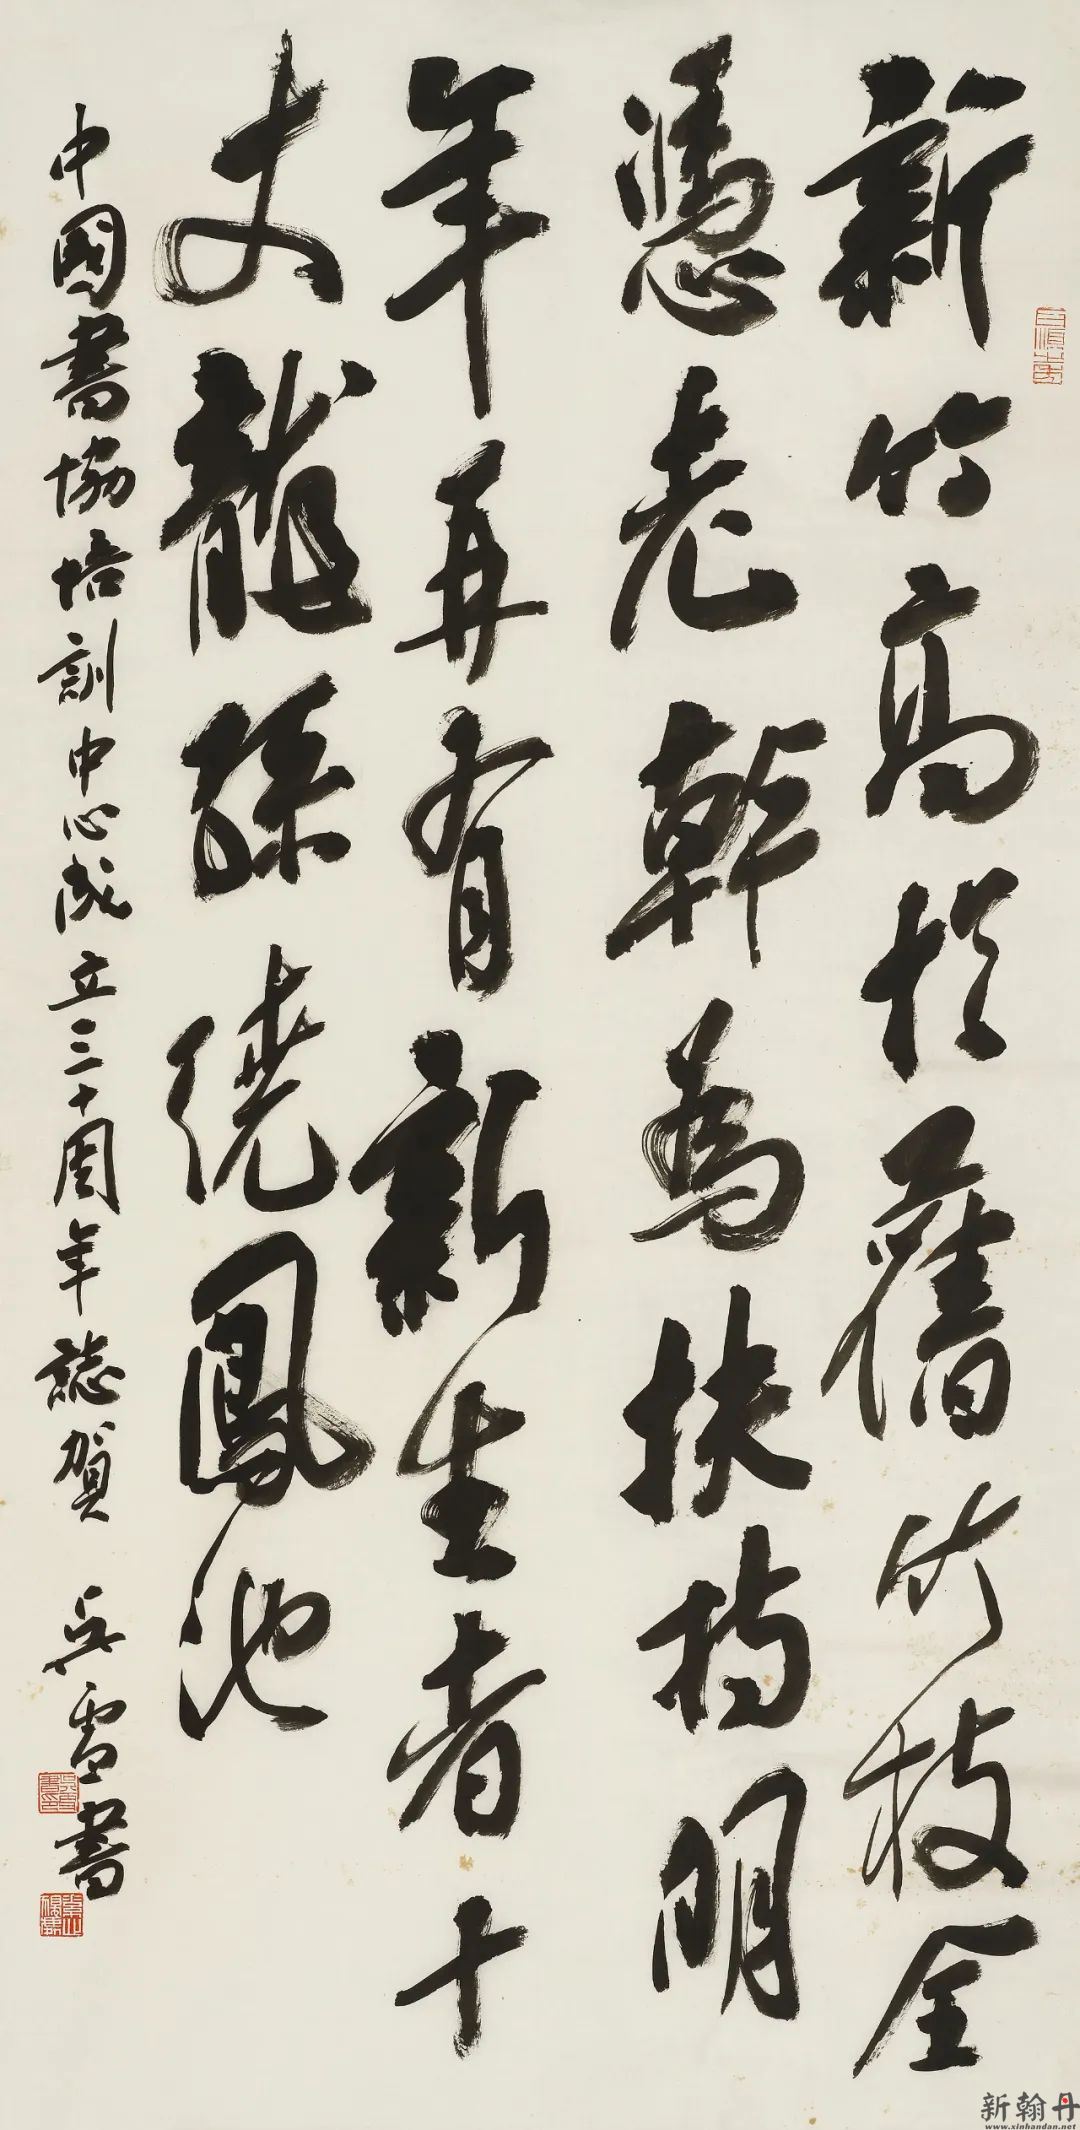 新竹高於舊竹枝全
憑老幹為扶持明
年再有新生者十
丈龍孫繞鳳池
中國書協培訓中心成立三十周年誌賀 吳雪書
新翰丹
www.xinhandan.net